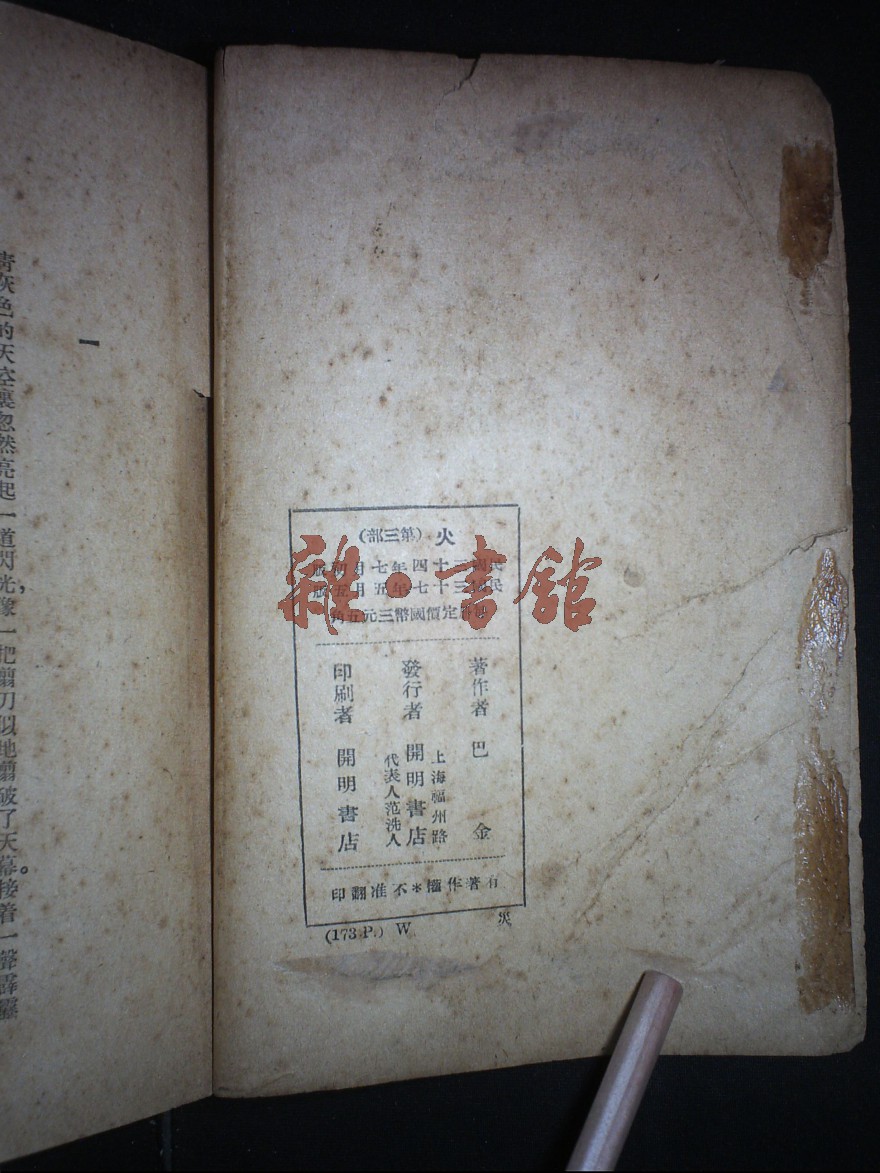 火(第三部)
民國三十四年七月初版
民國三十七年五月五版
定價國幣三元五角
著作者 巴金
上海福州路
發行者 開明書店
代表人范洗人
印刷者 開明書店
有著作權*不准翻印
(173 P.) W
雜·書館
一
青灰色的天空裏忽然亮起一道閃光，像一把剪刀似地剪破了天幕。接着一聲霹靂